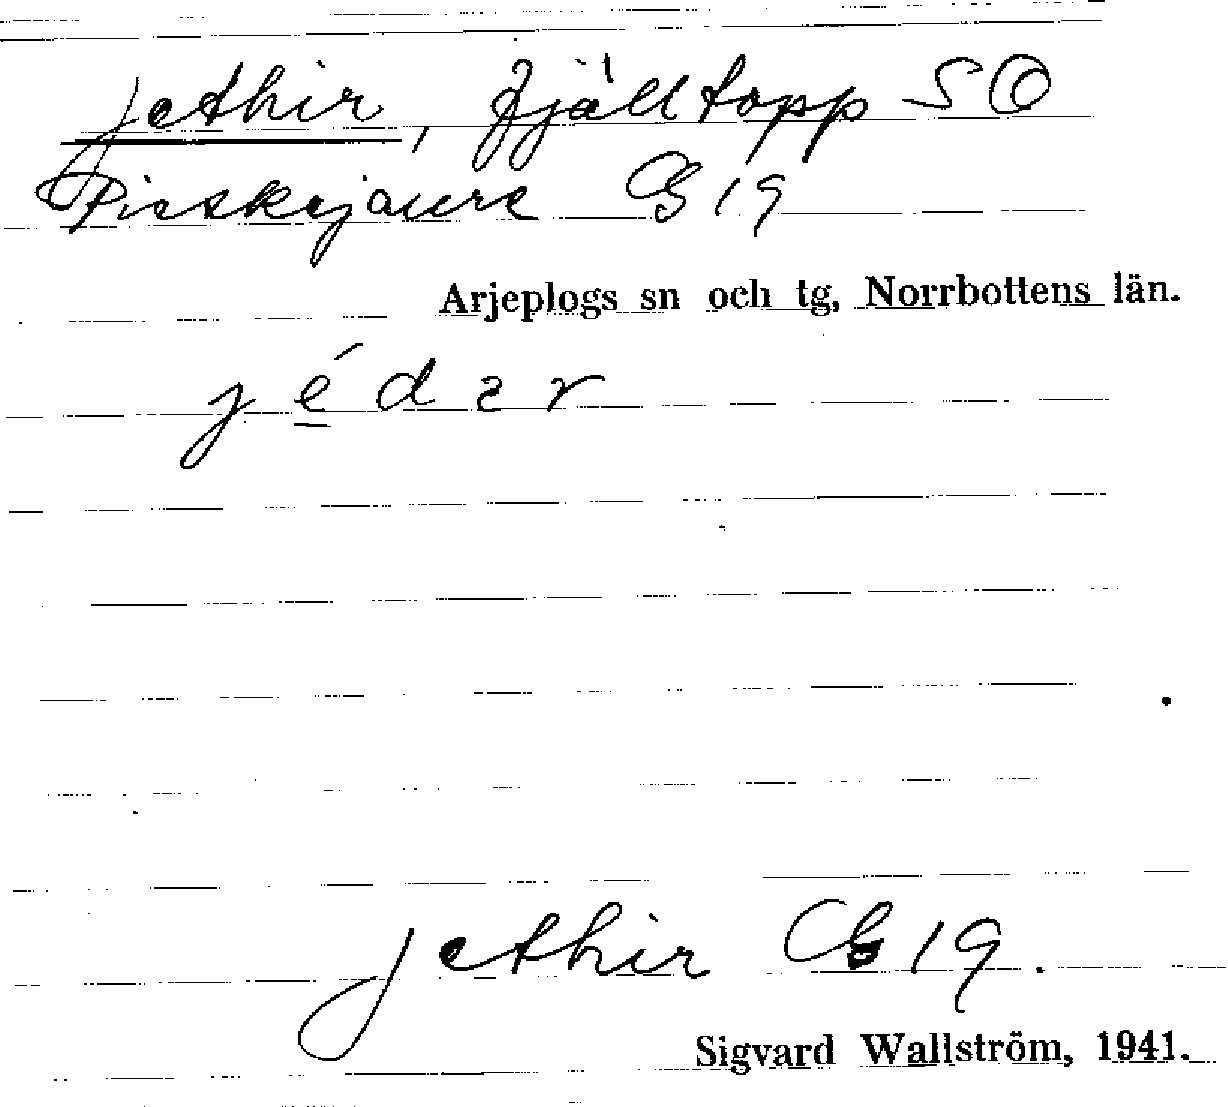 Jethir, fjälltopp SO
Pieskejaure G 19
Arjeplogs sn och tg, Norrbottens län.
jédər
Jethir G 19.
Sigvard Wallström, 1941.